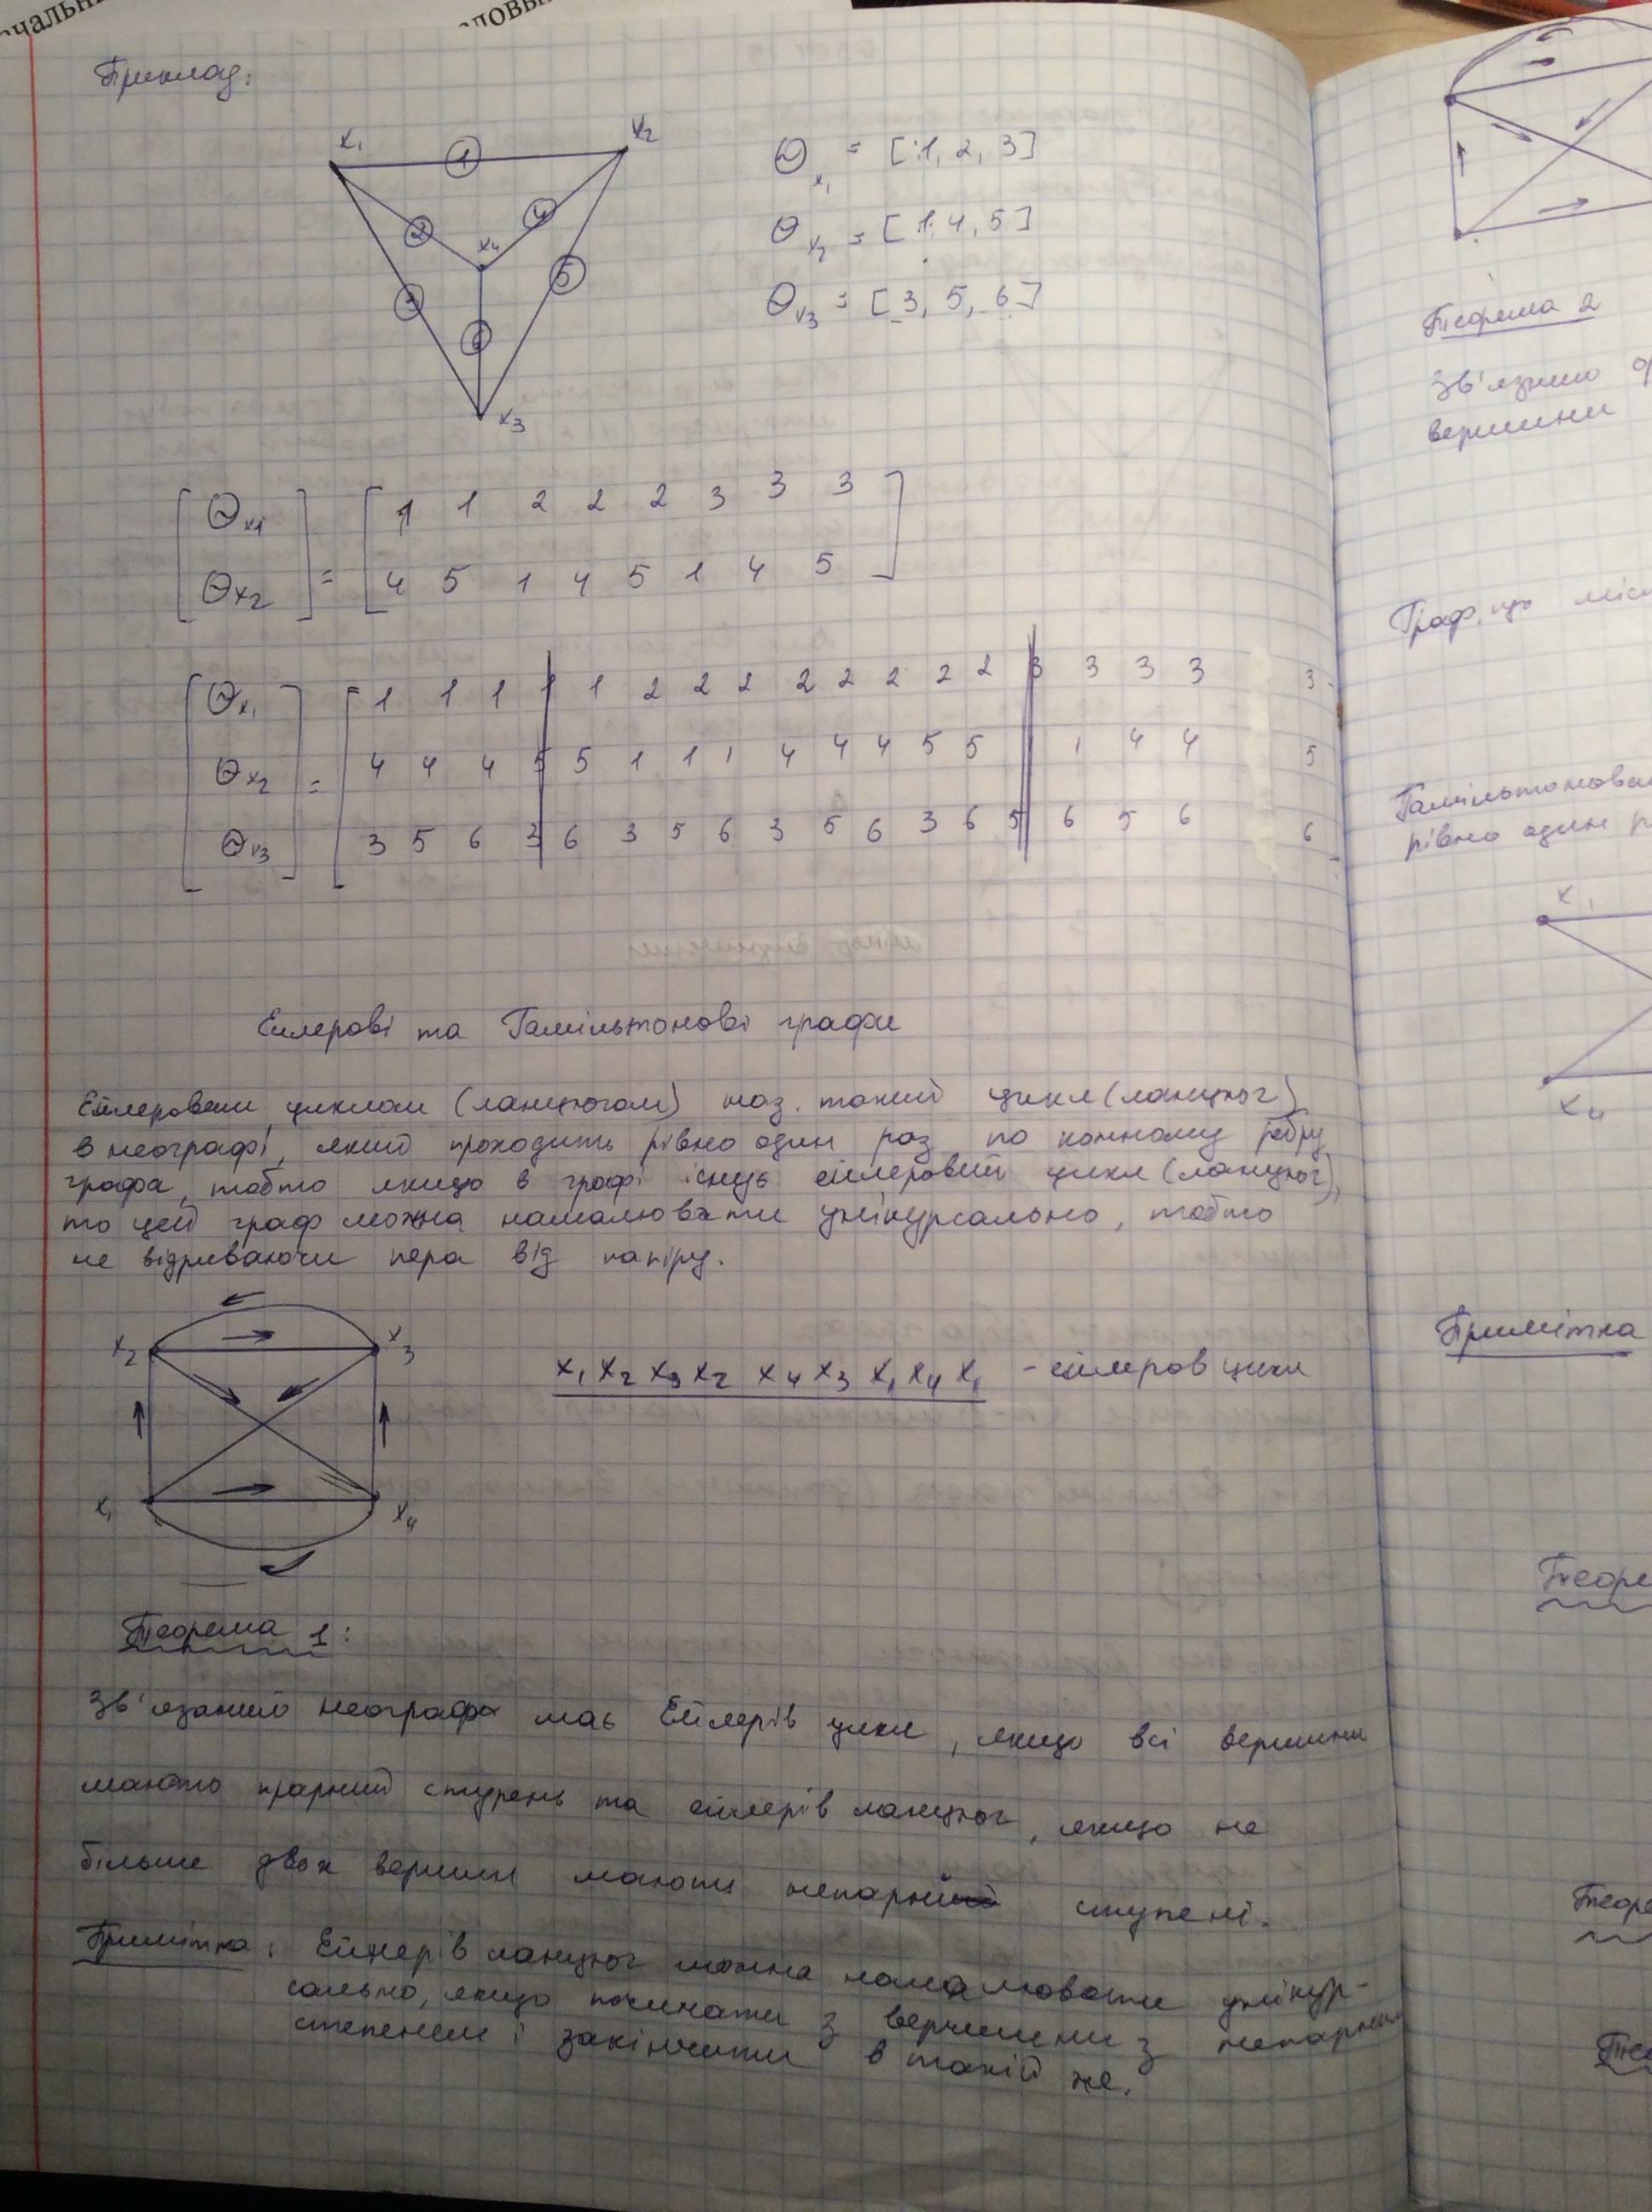 Приклад:
x₁ 1 x₂
2 4
x₄
3 5
6
x₃
Θx₁ = [1, 2, 3]
Θx₂ = [1, 4, 5]
Θx₃ = [3, 5, 6]
[Θx1] = [1 1 2 2 2 3 3 3]
[Θx2] = [4 5 1 4 5 1 4 5]
[Θx₁] = [1 1 1 1 1 2 2 2 2 2 2 2 2 3 3 3 3 3
[Θx₂] = [4 4 4 5 5 1 1 1 4 4 4 5 5 1 1 4 4 5
[Θx3] = [3 5 6 3 6 3 5 6 3 5 6 3 6 5 6 5 6 6
Ейлерові та Гамільтонові графи
Ейлеровим циклом (ланцюгом) наз. такий цикл (ланцюг)
в неографі, який проходить рівно один раз по кожному ребру
графа, тобто якщо в графі існує ейлеровий цикл (ланцюг),
то цей граф можна намалювати унікурсально, тобто
не відриваючи пера від папіру.
x₂ x₃
x₁ x₄
x₁ x₂ x₃ x₂ x₄ x₃ x₁ x₄ x₁ - ейлеров цикл
Теорема 1:
Зв'язаний неограф має Ейлерів цикл, якщо всі вершини
мають парний ступень та ейлерів ланцюг, якщо не
більше двох вершин мають непарні ступені.
Примітка: Ейлерів ланцюг можна намалювати унікур-
сально, якщо починати з вершини з непарним
степенем і закінчити в такій же.
Теорема 2
Зв'язний
вершини
Граф, що
рівно один
x₁
x₄
Примітка